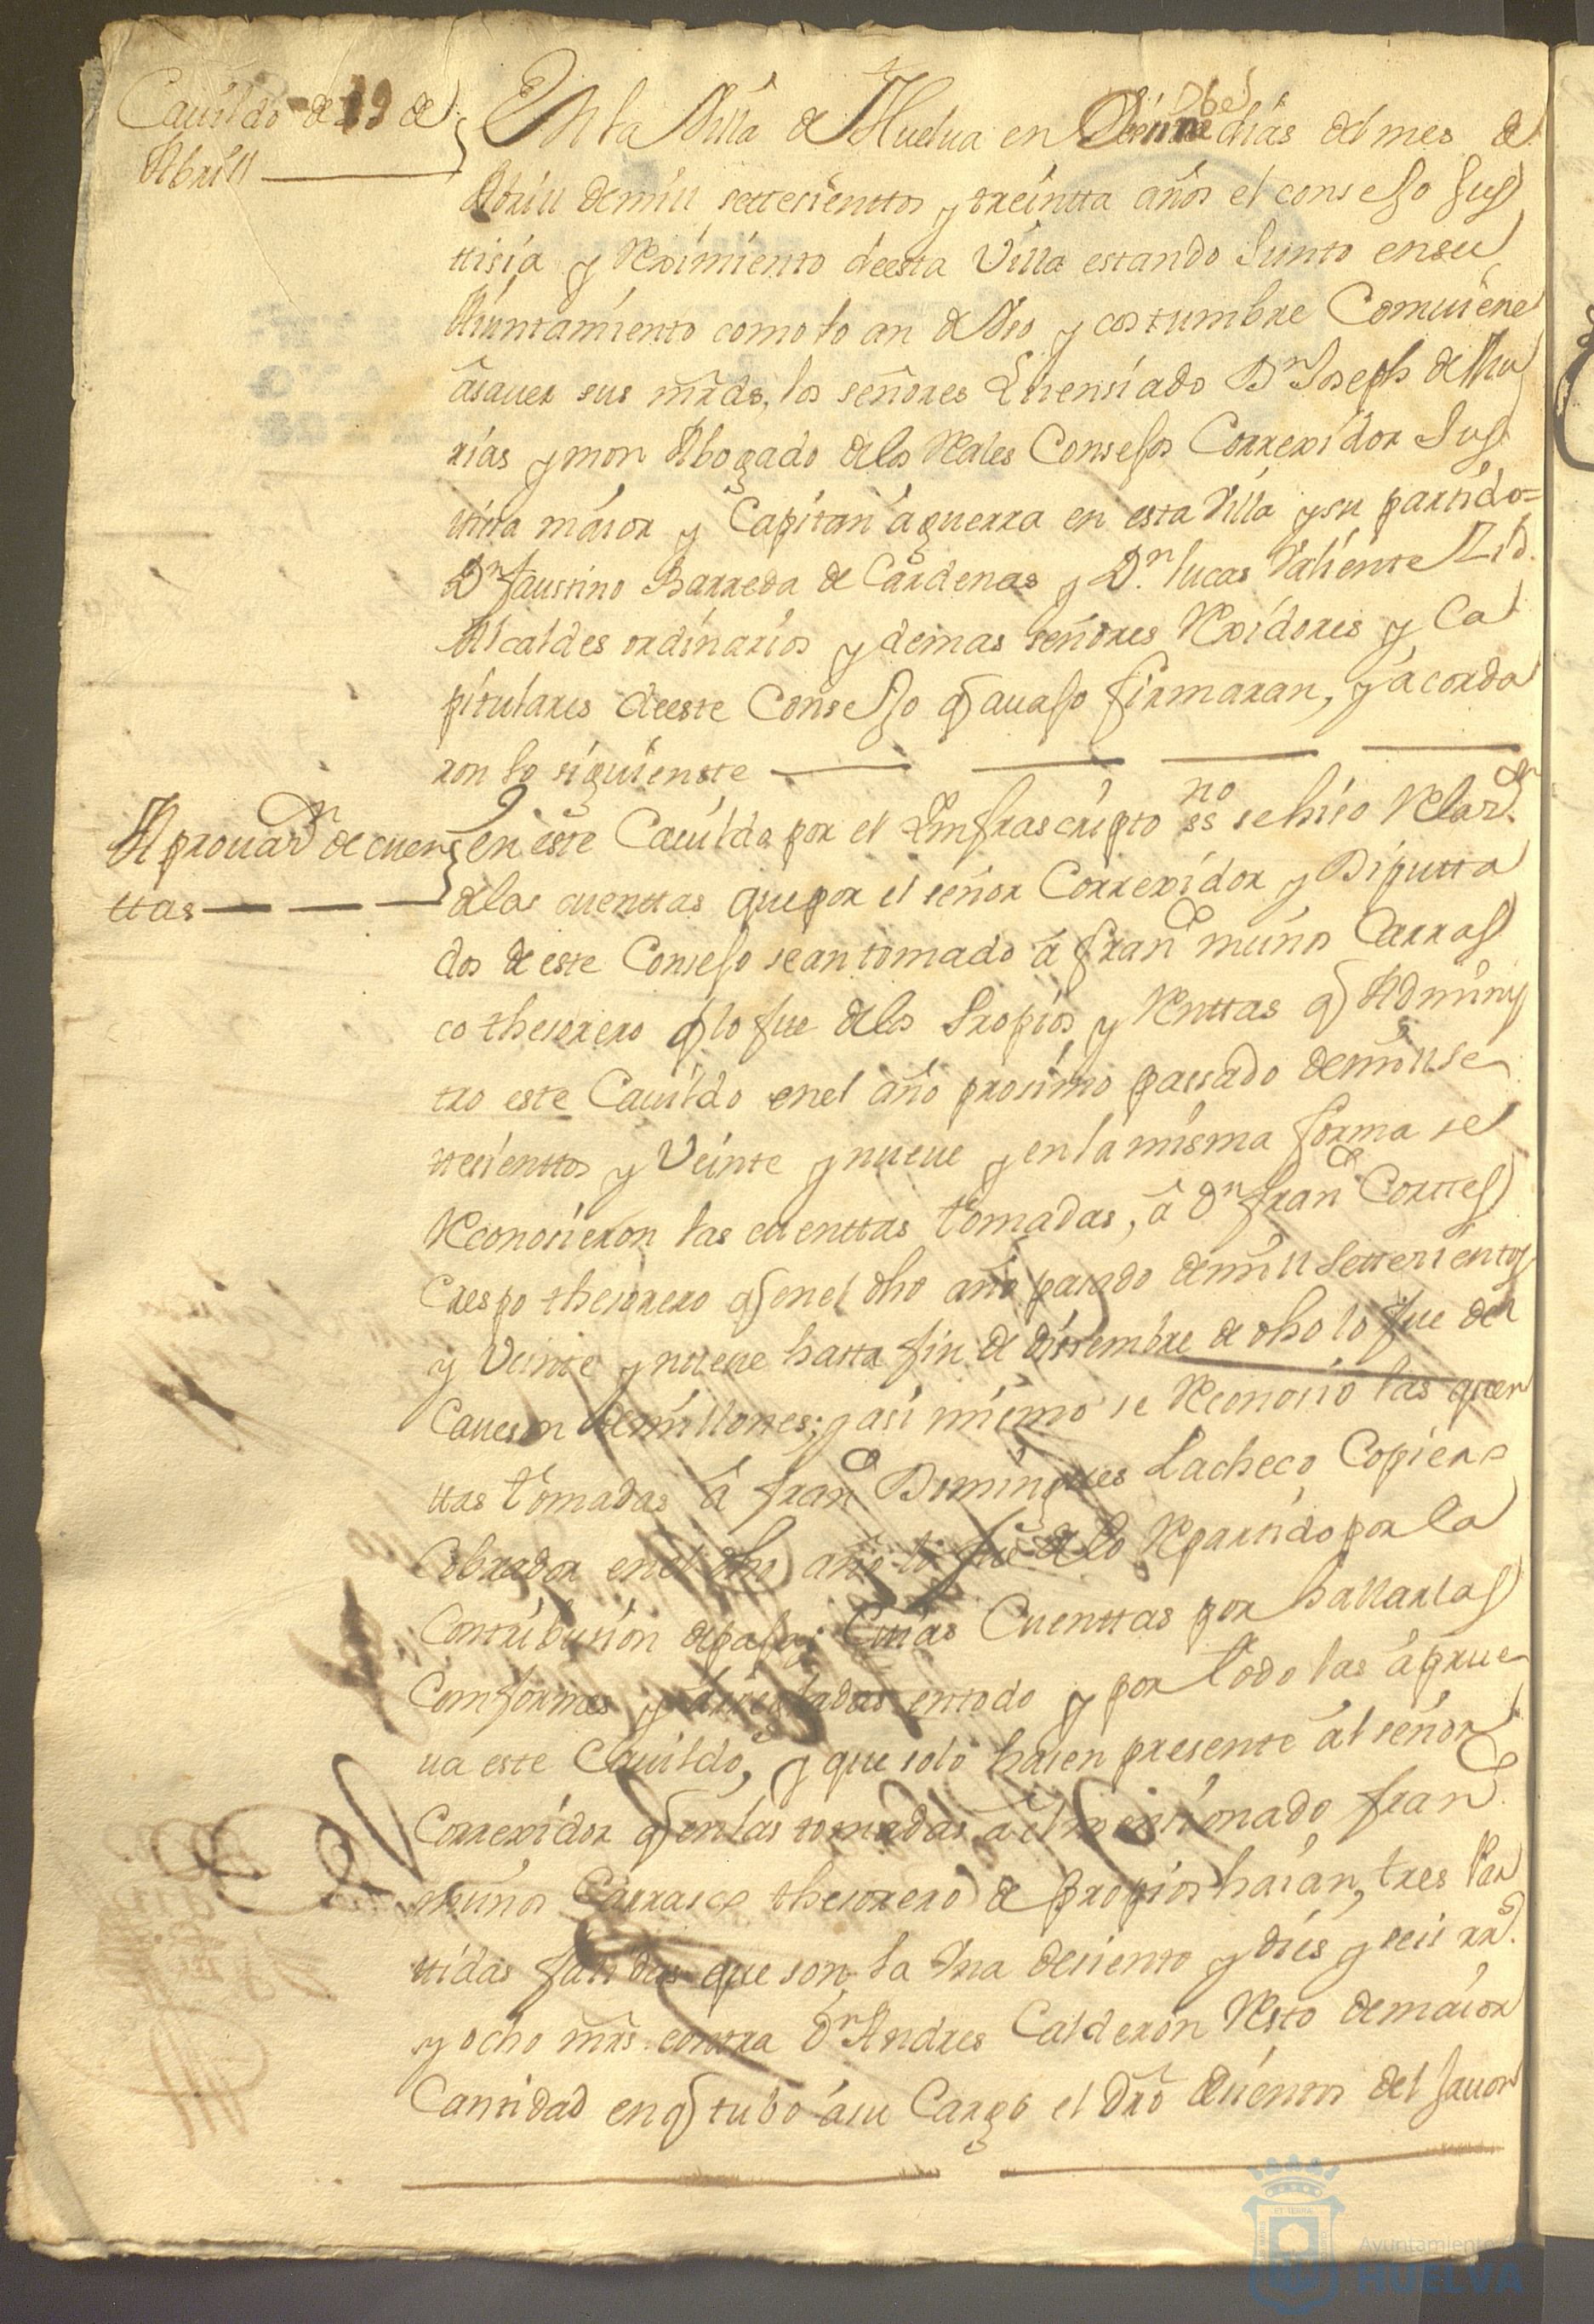 Cauildo de 19 de
Abrill
En la Villa de Huelua en Dies y nueve dias del mes de
Abrill de mill settesienttos y treintta años el consejo Jus
ttisia y Reximiento de esta Villa estando Junto en su
Aiuntamiento como lo an de Vso y costumbre Comuiene
asauer sus mrds, los señores Lisensiado Dn Joseph de
rias y mon Abogado de los Reales Consejos Correxidor Jus
ttisia maior y Capitan aguerra en esta Villa y su partido=
Dn faustino Barreda de Cardenas y Dn lucas Valiente
Alcaldes ordinarios y demas señores Rexidores y Ca
pitulares de este Consejo q auajo firmaran, y acorda
ron lo siguiente
Aprouaon de cuen
ttas
en este Cauildo por el Infrascripto ssno se hiso Relaon
de las cuenttas que por el señor Correxidor y Diputta
dos de este Consejo se an tomado a franco muños Carras
co thesorero q lo fue de los Propios y Renttas q Adminis
tro este Cauildo en el año prosimo passado de mill se
ttesienttos y Veinte y nueue y en la misma forma se
Reconosieron las cuenttas tomadas, a Dn franco Corttes
Crespo thesorero q en el dho año pasado de mill settesientos
y Veinte y nueue hasta fin de dissiembre de dho lo fue del
Caueson de millones; y asi mismo se Reconosio las quen
ttas tomadas a franco Domingues Pacheco Copiero
Cobrador en el dho año lo fue de lo Repartido por la
Contribusion de paja; Cuias Cuenttas por hallarlas
Comformes y arregladas en todo y por todo las aprue
ua este Cauildo, y que solo hasen presente al señor
Correxidor q en las tomadas a el mensionado franco
muños Carrasco thesorero de propios haian, tres Par
ttidas fallidas que son, la Vna de siento y dies y seis rrs.
y ocho mrs. contra Dn Andres Calderon Resto de maior
Cantidad en q tubo a su Cargo el dro de uientos del